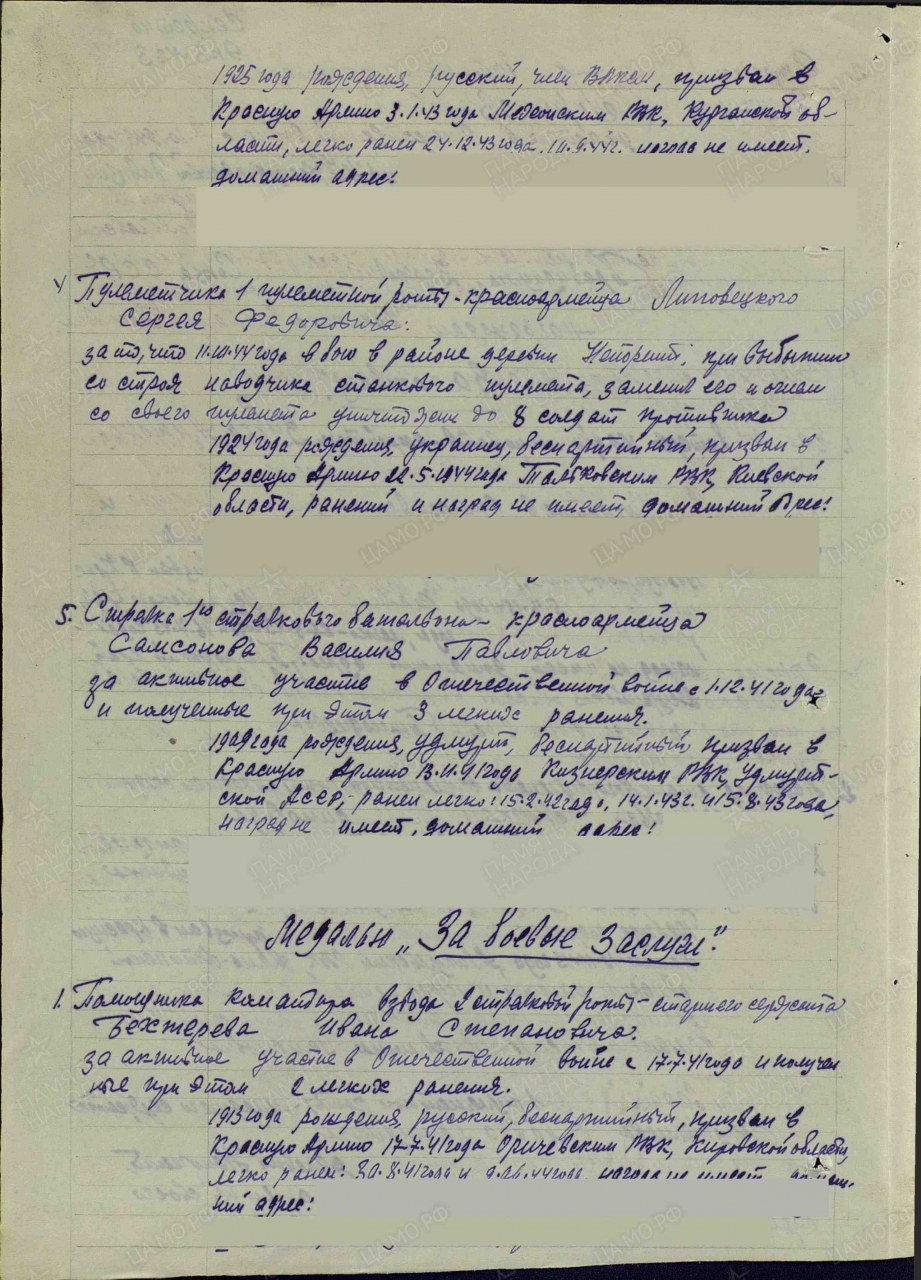 1925 года рождения, русский, член ВЛКСМ, призван в
Красную Армию 3.1.43 года РВК, Курганской об-
ласти, легко ранен 24.12.43 года, наград не имеет.
домашний адрес:
Пулеметчика 1 пулеметной роты - красноармейца Липовецкого
Сергея Федоровича:
за то, что 11.10.44 года в бою в районе деревни Непоренти, при выбытии
со строя наводчика станкового пулемета, заменил его и огнем
со своего пулемета уничтожен до 8 солдат противника
1924 года рождения, украинец, беспартийный, призван в
Красную Армию 22.5.1944 года РВК, Киевской
области, ранений и наград не имеет, домашний адрес:
5. Стрелка 1го стрелкового батальона - красноармейца
Самсонова Василия Павловича
за активное участие в Отечественной войне с 1.12.41 года
и полученные при этом 3 легких ранения.
1909 года рождения, удмурт, беспартийный, призван в
Красную Армию 13.11.41 года Кизнерским РВК, Удмурт-
ской АССР, ранен легко: 15.2.42 года, 14.1.43 г. и 15.8.43 года,
наград не имеет, домашний адрес:
Медалью "За боевые заслуги":
1. Помощника командира взвода 2 стрелковой роты - старшего сержанта
Бехтерева Ивана Степановича.
за активное участие в Отечественной войне с 17.7.41 года и получен
ные при этом 2 легких ранения.
1913 года рождения, русский, беспартийный, призван в
Красную Армию 17.7.41 года Оричевским РВК, Кировской области,
легко ранен: наград не имеет
ний адрес:
ПАМЯТЬ НАРОДА
ЦАМО.РФ